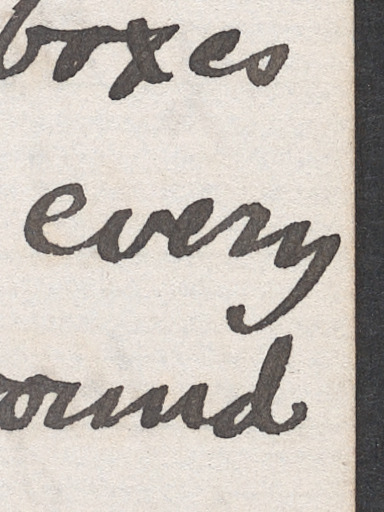 boxes
every
ound